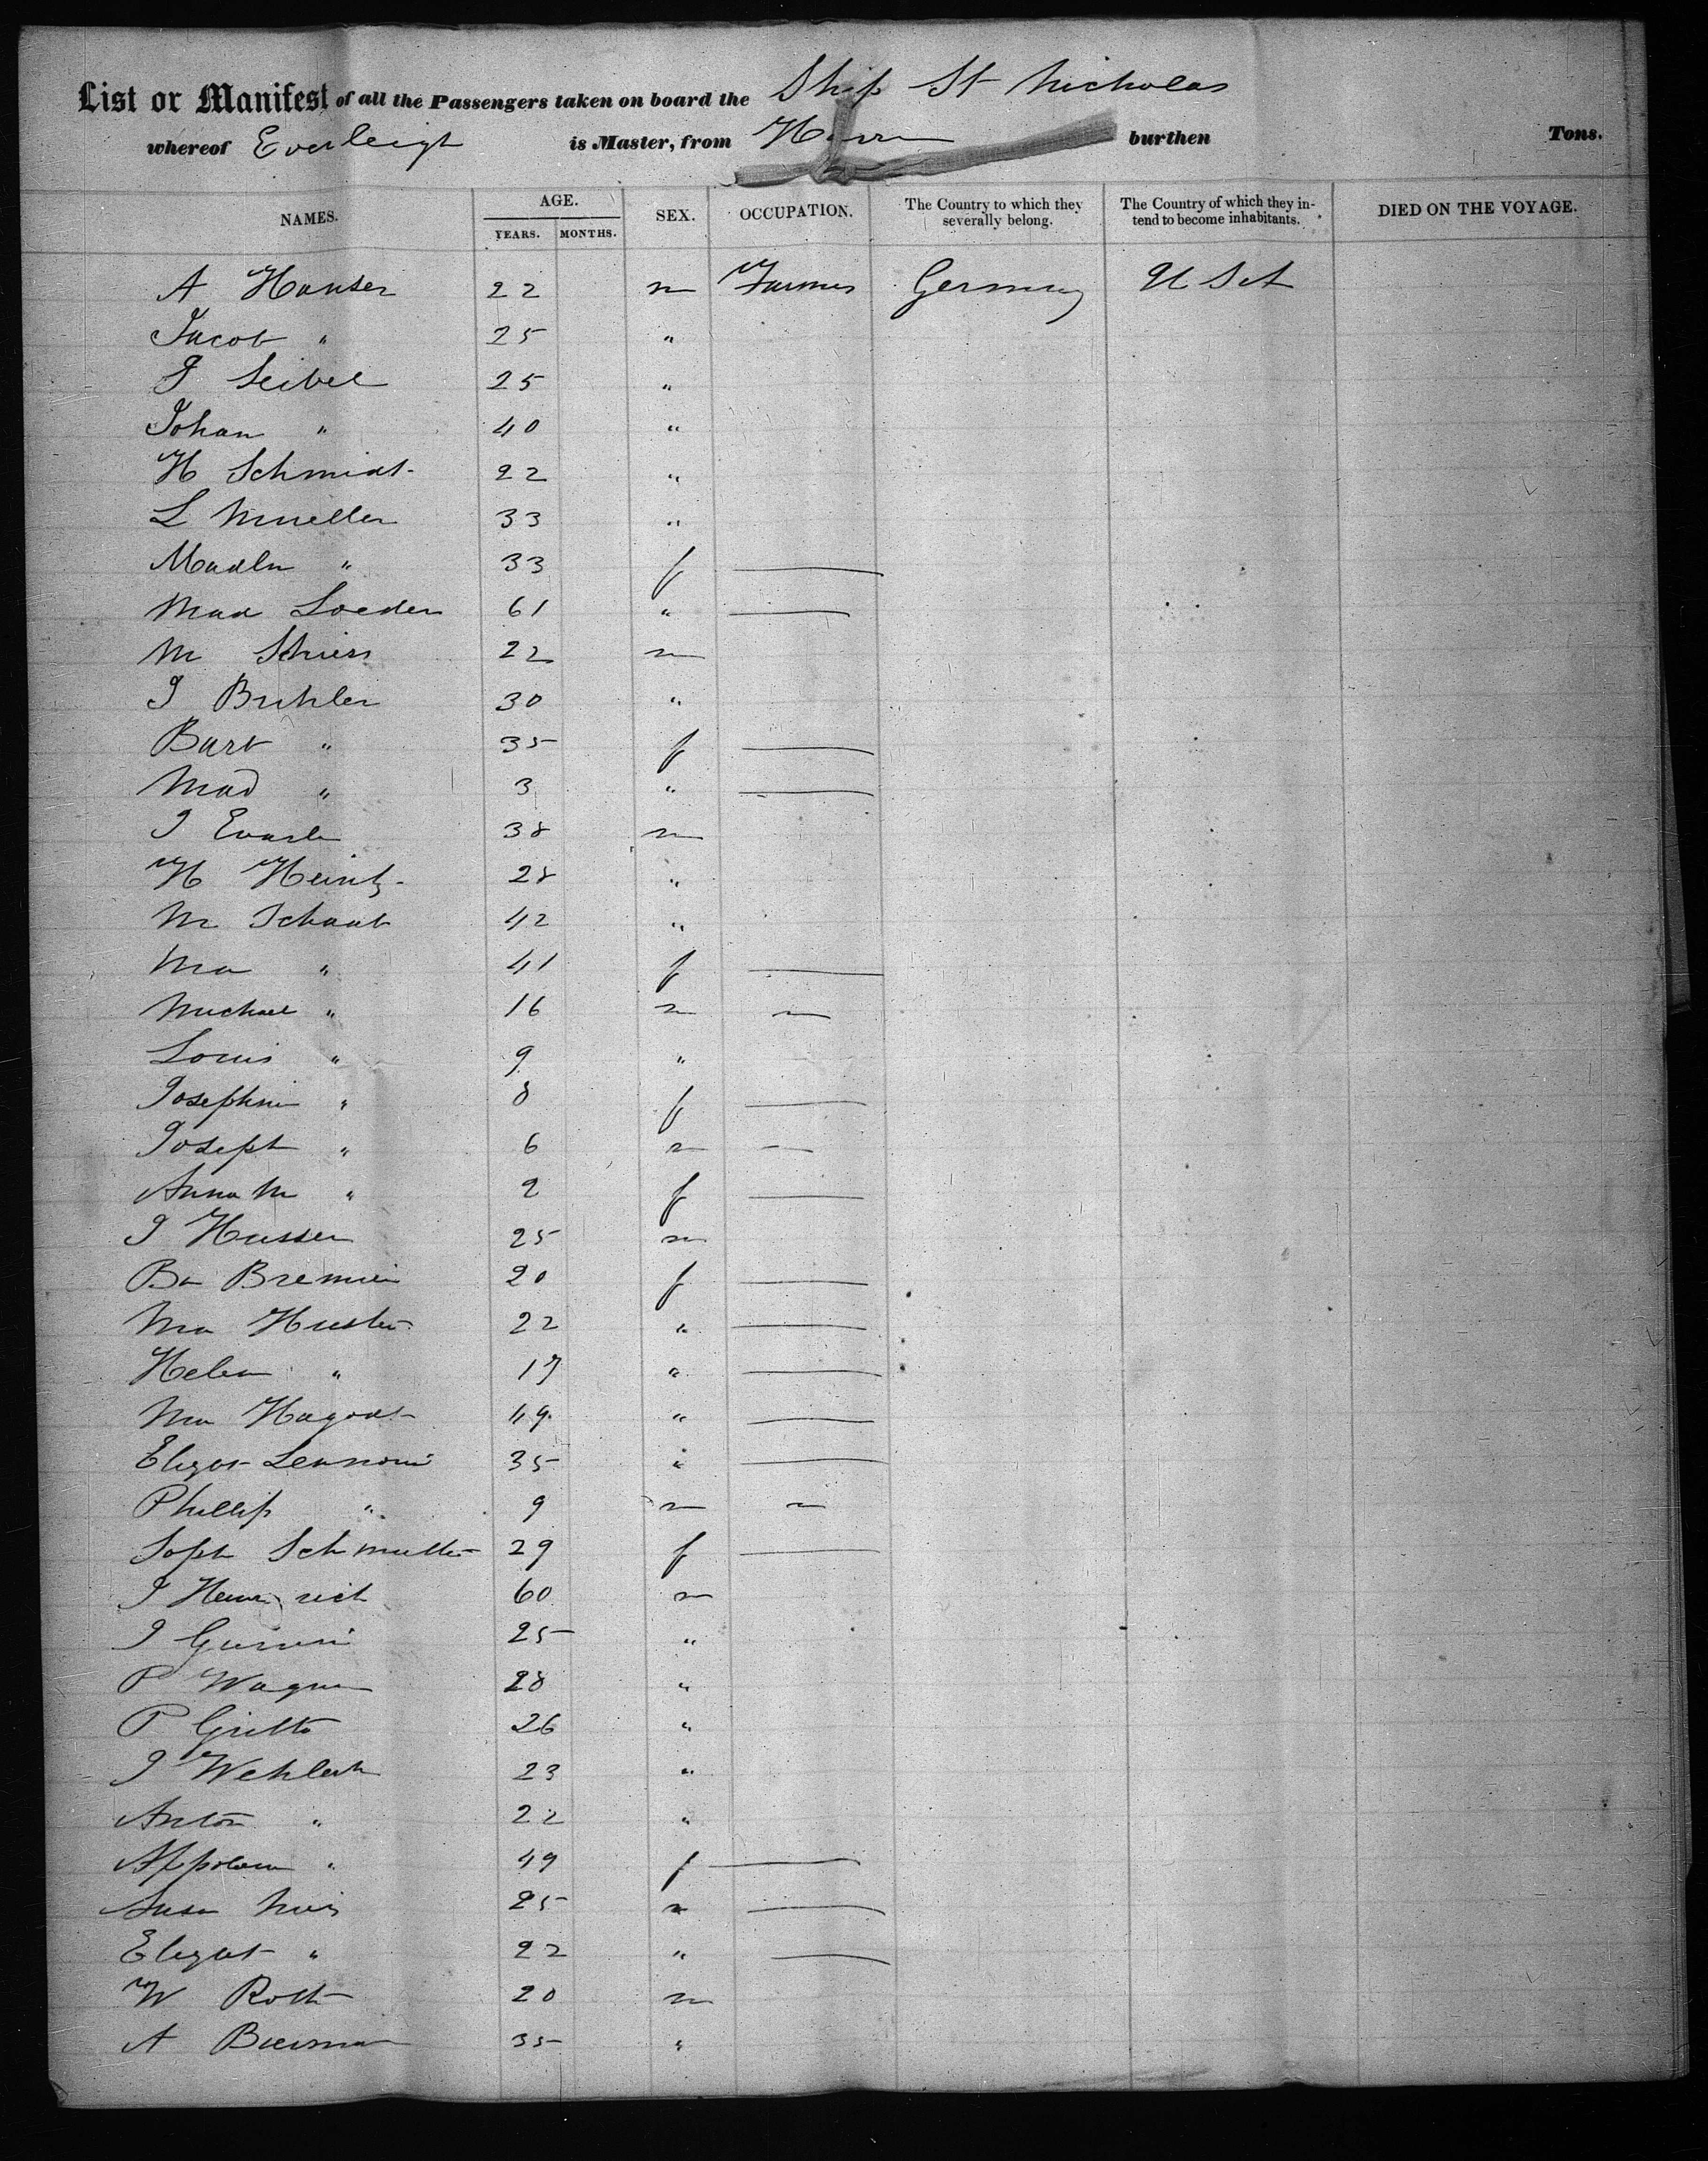 List or Manifest of all the Passengers taken on board the Ship St Nicholas
whereof Everleigh is Master, from burthen Tons.
NAMES. AGE. YEARS. MONTHS. SEX. OCCUPATION. The Country to which they severally belong. The Country of which they intend to become inhabitants. DIED ON THE VOYAGE.
A Hauser 22 m Farmer Germany U S A
Jacob " 25 "
J Seibel 25 "
Johan " 40 "
H Schmidt 22 "
L Mueller 33 "
Madln " 33 f —
Mad Loeder 61 " —
M 22 m
J Buhler 30 "
Barb " 35 f —
Mad " 3 " —
J 38 m
H Heintz 28 "
M Schaub 42 "
Ma " 41 f —
Michael " 16 m —
Louis " 9 "
Josephine " 8 f —
Joseph " 6 m —
Anna M " 2 f —
J Husser 25 m
Ba 20 f —
Ma 22 " —
Helen " 17 " —
Ma 49 " —
Elizab 35 " —
Phillip " 9 m —
Soph 29 f —
J Heinrich 60 m
J 25 "
P Wagner 28 "
P 26 "
J 23 "
Anton " 22 "
49 f —
Susa 25 —
Elizab " 22 " —
W Roth 20 m
A 35 "